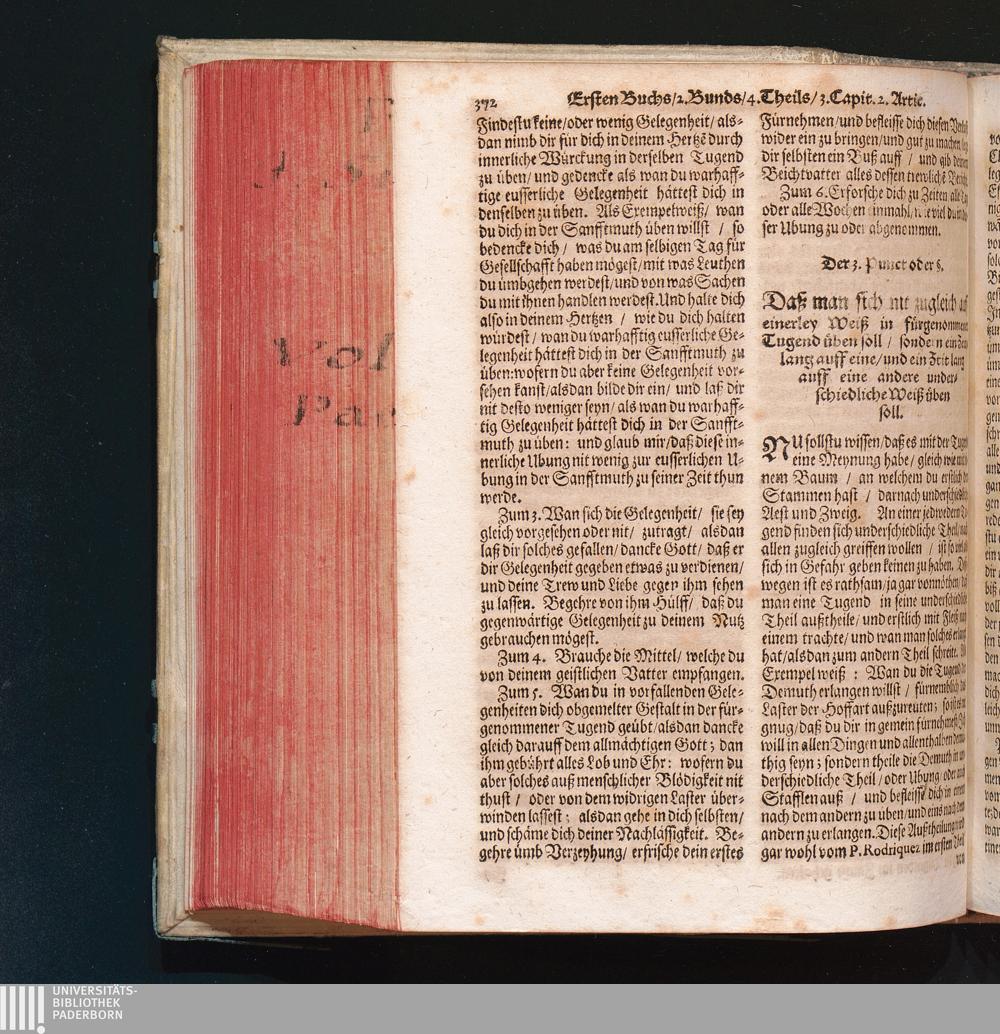 372 Ersten Buchs/2.Bunds/4.Theils/3.Capit.2.Artic.
Findestu keine/oder wenig Gelegenheit/als-
dan nimb dir für dich in deinem Hertzē durch
innerliche Würckung in derselben Tugend
zu üben/ und gedencke als wan du warhaff-
tige eusserliche Gelegenheit hättest dich in
denselben zu üben. Als Exempelweiß/ wan
du dich in der Sanfftmuth üben willst / so
bedencke dich / was du am selbigen Tag für
Gesellschafft haben mögest/mit was Leuthen
du ümbgehen werdest/und von was Sachen
du mit ihnen handlen werdest.Und halte dich
also in deinem Hertzen / wie du dich halten
würdest / wan du warhafftig eusserliche Ge-
legenheit hättest dich in der Sanfftmuth zu
üben:wofern du aber keine Gelegenheit vor-
sehen kanst/alsdan bilde dir ein/ und laß dir
nit desto weniger seyn/ als wan du warhaff-
tig Gelegenheit hättest dich in der Sanfft-
muth zu üben: und glaub mir/daß diese in-
nerliche Ubung nit wenig zur eusserlichen U-
bung in der Sanfftmuth zu seiner Zeit thun
werde.
Zum 3. Wan sich die Gelegenheit/ sie sey
gleich vorgesehen oder nit/ zutragt/ alsdan
laß dir solches gefallen/dancke Gott/ daß er
dir Gelegenheit gegeben etwas zu verdienen/
und deine Trew und Liebe gegen ihm sehen
zu lassen. Begehre von ihm Hülff/ daß du
gegenwärtige Gelegenheit zu deinem Nutz
gebrauchen mögest.
Zum 4. Brauche die Mittel/ welche du
von deinem geistlichen Vatter empfangen.
Zum 5. Wan du in vorfallenden Gele-
genheiten dich obgemelter Gestalt in der für-
genommener Tugend geübt/alsdan dancke
gleich darauff dem allmächtigen Gott; dan
ihm gebührt alles Lob und Ehr: wofern du
aber solches auß menschlicher Blödigkeit nit
thust / oder von dem widrigen Laster über-
winden lassest; alsdan gehe in dich selbsten/
und schäme dich deiner Nachlässigkeit. Be-
gehre ümb Verzeyhung/ erfrische dein erstes
Fürnehmen/und befleisse dich diesen
wider ein zu bringen/und gut zu machen
dir selbsten ein Buß auff / und gib deinem
Beichtvatter alles dessen
Zum 6. Erforsche dich zu Zeiten alle
oder alle Wochen einmahl/ wie viel du
ser Ubung zu oder abgenommen.
Der 3. Punct oder §.
Daß man sich nit zugleich auf
einerley Weiß in fürgenommener
Tugend üben soll / sondern ein Zeit
lang auff eine/und ein Zeit lang
auff eine andere under-
schiedliche Weiß üben
soll.
NU sollstu wissen/daß es mit der Tugend
eine Meynung habe/ gleich wie
nem Baum / an welchem du erstlich
Stammen hast / darnach underschiedliche
Aest und Zweig. An einer jedwedern
gend finden sich underschiedliche Theil/
allen zugleich greiffen wollen / ist so viel
sich in Gefahr geben keinen zu haben.
wegen ist es rathsam/ja gar vonnöthen/
man eine Tugend in seine underschiedliche
Theil außtheile/und erstlich mit Fleiß
einem trachte/ und wan man solches
hat/alsdan zum andern Theil schreite.
Exempel weiß : Wan du die Tugend
Demuth erlangen willst / fürnemblich
Laster der Hoffart außzureuten;
gnug/daß du dir in gemein fürnehmest:
will in allen Dingen und allenthalben
thig seyn; sondern theile die Demuth in
derschiedliche Theil / oder Ubung oder
Stafflen auß / und befleisse dich in einem
nach dem andern zu üben/und eins nach dem
andern zu erlangen. Diese Außtheilung
gar wohl vom P. Rodriquez im ersten Theil
Vol
UNIVERSITÄTS-
BIBLIOTHEK
PADERBORN